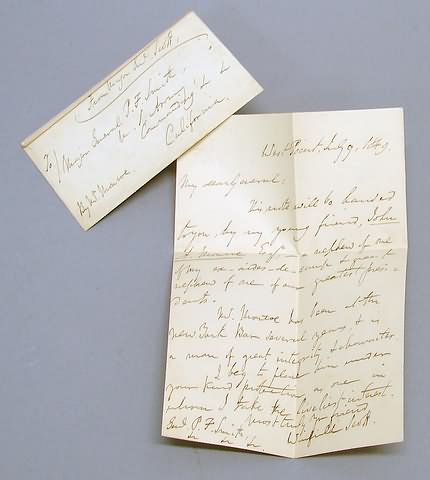 From Major Genl. Scott,
To/
Major General P. F. Smith,
U. S. Army
Commanding &c &
California.
By Mr. Monroe.
West Point, July 9, 1849.
My dear General:
This note will be handed
to you, by my young friend, John
J. Monroe Esqr. a nephew of one
of my ex-aides-de-camp & grand
nephew of one of our greatest presi-
dents.
Mr. Monroe has been at the
New York Bar several years, & is
a man of great integrity & character.
I beg to place him under
your kind protection, as one in
whom I take the liveliest interest.
Most truly yr friend
Winfield Scott.
Genl. P. F. Smith
&c &c &c